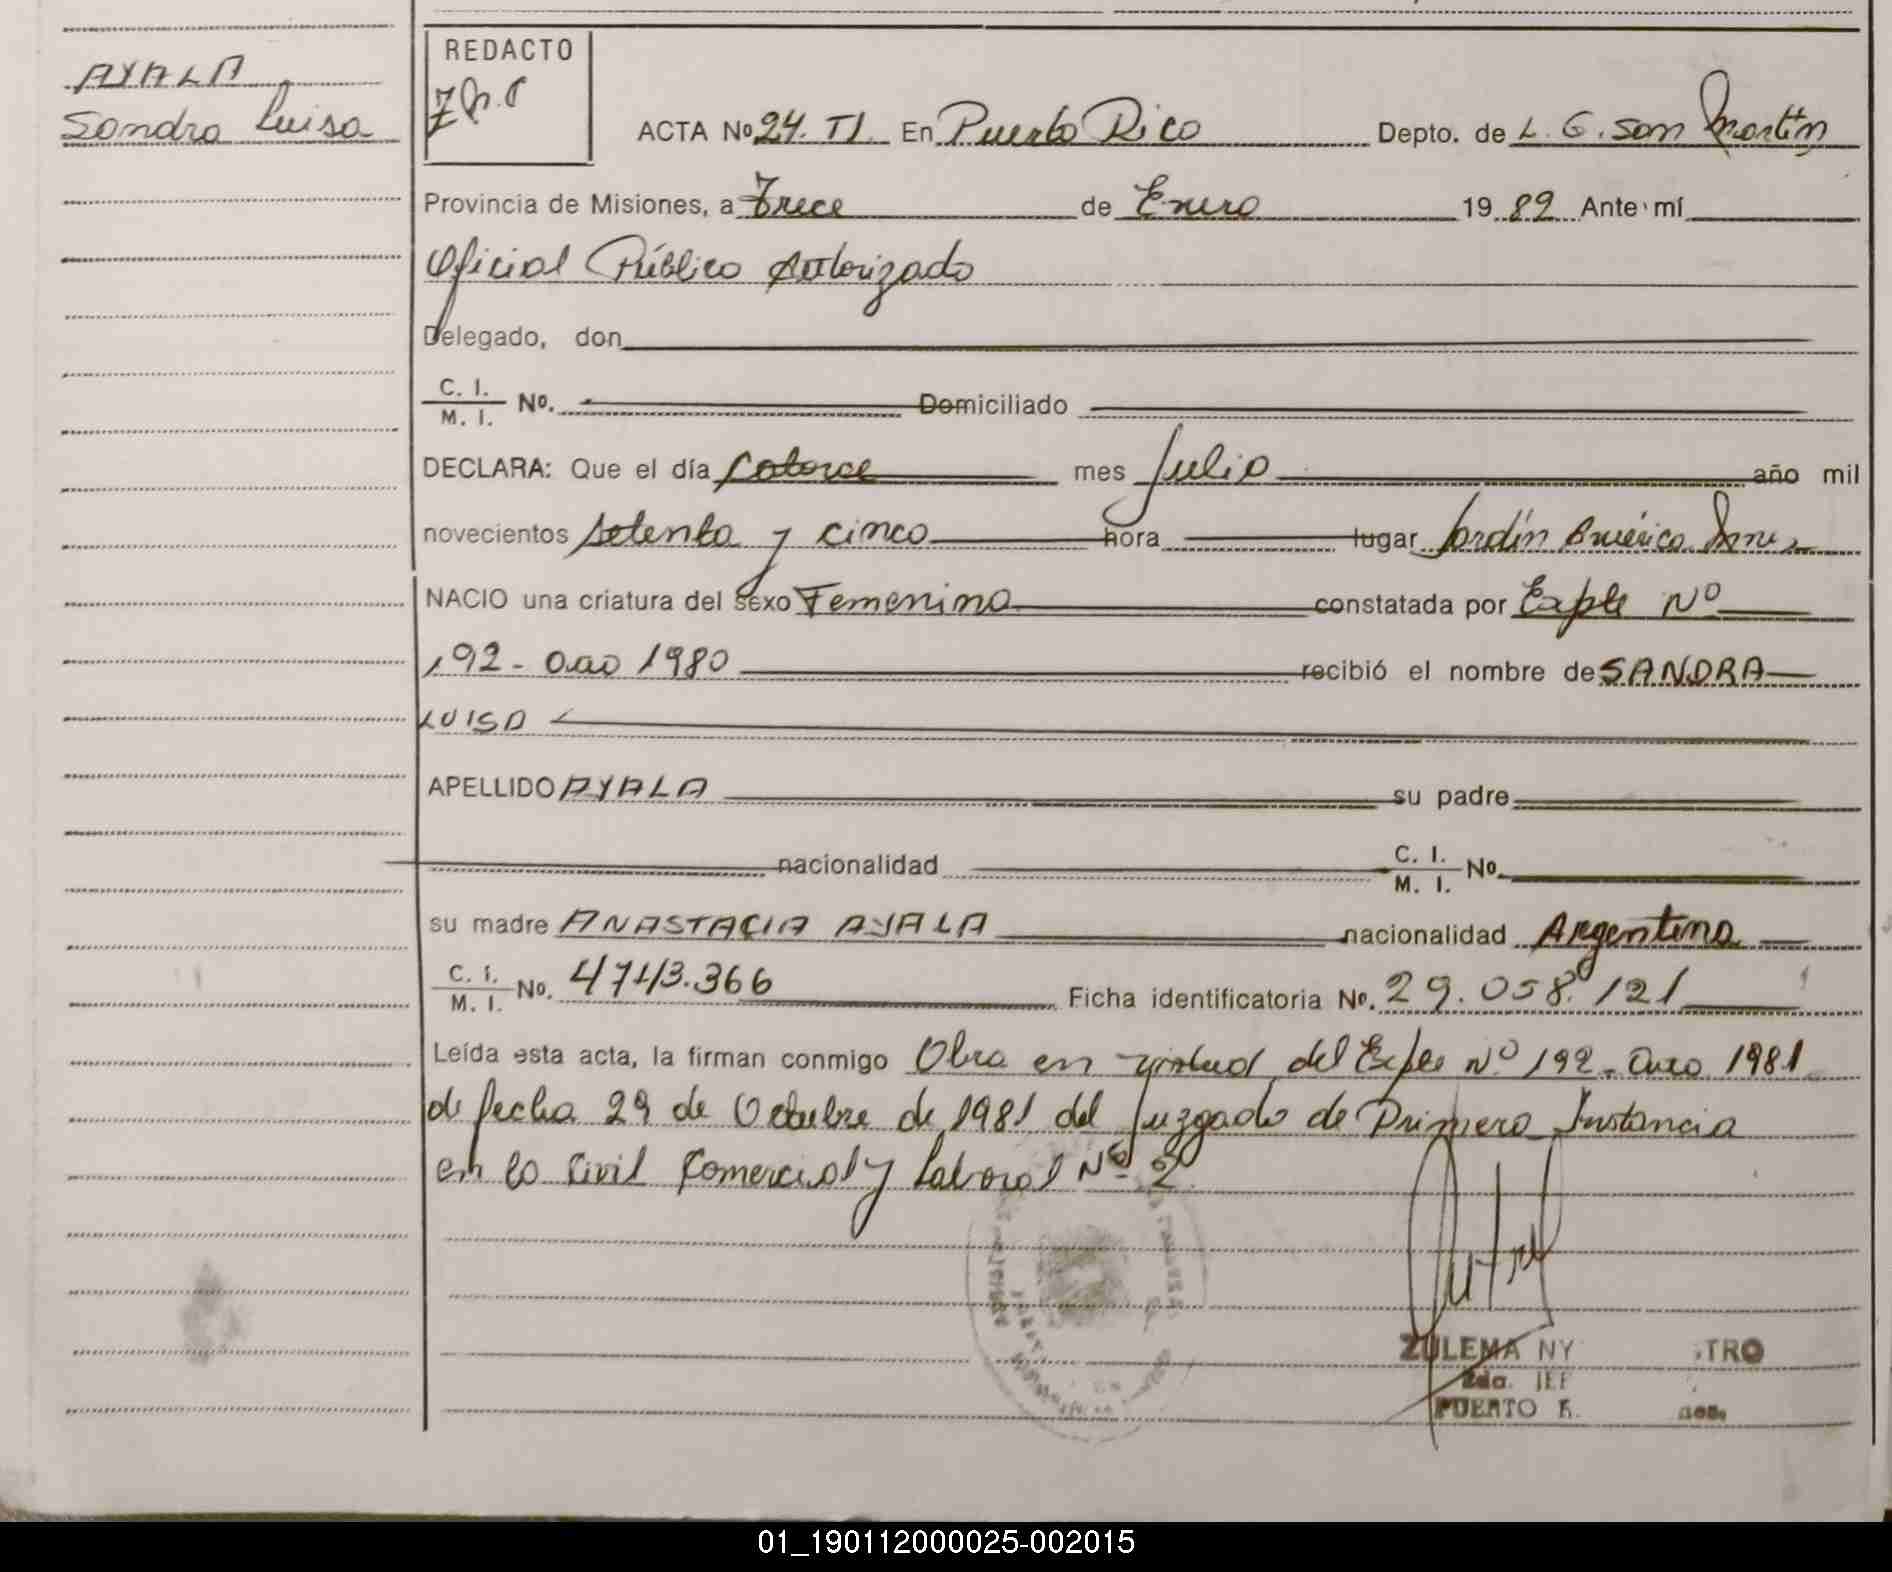 AYALA
Sandra Luisa
REDACTO
ACTA No 24. TI. En Puerto Rico Depto. de L. G. San Martín
Provincia de Misiones, a Trece de Enero 19 82 Ante mí
Oficial Público Autorizado
Delegado, don
C. I.
M. I. No. Domiciliado
DECLARA: Que el día Catorce mes Julio año mil
novecientos setenta y cinco hora lugar Jardín América
NACIO una criatura del sexo Femenino constatada por Expte Nº
192 - año 1980 recibió el nombre de SANDRA
LUISA
APELLIDO AYALA su padre
nacionalidad C. I.
M. I. No.
su madre ANASTACIA AYALA nacionalidad Argentina
C. I.
M. I. No. 4743.366 Ficha identificatoria No. 29.058.121
Leída esta acta, la firman conmigo Obra en virtud del Expte Nº 192 - año 1981
de fecha 29 de Octubre de 1981 del Juzgado de Primera Instancia
en lo Civil Comercial y Laboral Nº 2
ZULEMA NY TRO
2da. JEF
PUERTO R.
01_190112000025-002015